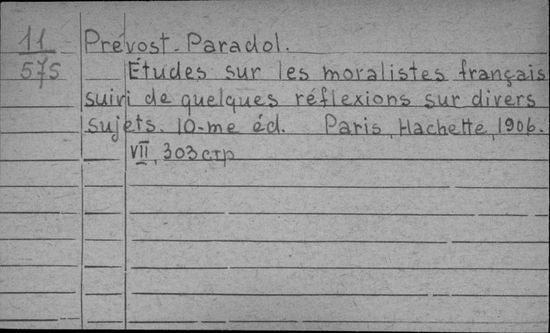 11 Prévost-Paradol.
575 Études sur les moralistes français
suivi de quelques réflexions sur divers
sujets. 10-me éd. Paris, Hachette, 1906.
VII, 303 стр